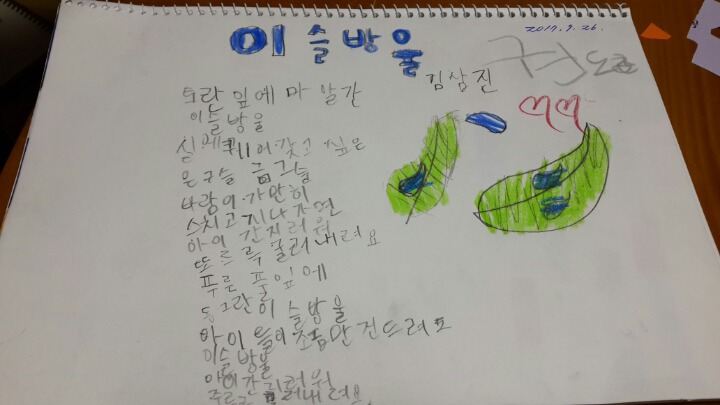 2017. 9. 26.
이슬방울
김삼진
토란 잎에 마 알간
이슬방울
실에 꿰어 갖고 싶은
은구슬 금구슬
바람이 가만히
스치고 지나가면
아이 간지러워
또르륵 굴러 내려요
푸른 풀잎에
동그란 이슬방울
아이들이 조금만 건드려도
이슬방울
아이 간지러워
주르르 흘러내려요